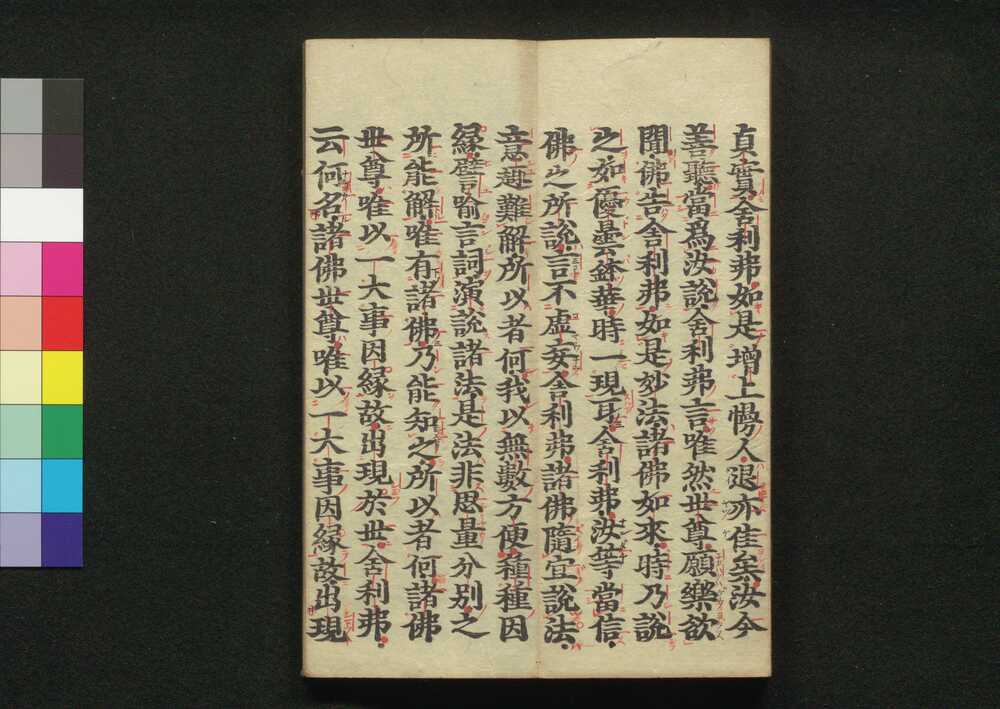 貞實舍利弗如是增上慢人退亦佳矣汝今
善聽當爲汝說舍利弗言唯然世尊願樂欲
聞佛告舍利弗如是妙法諸佛如來時乃說
之如優曇鉢華時一現耳舍利弗汝等當信
佛之所說言不虛妄舍利弗諸佛隨宜說法
意趣難解所以者何我以無數方便種種因
緣譬喻言詞演說諸法是法非思量分別之
所能解唯有諸佛乃能知之所以者何諸佛
世尊唯以一大事因緣故出現於世舍利弗
云何名諸佛世尊唯以一大事因緣故出現